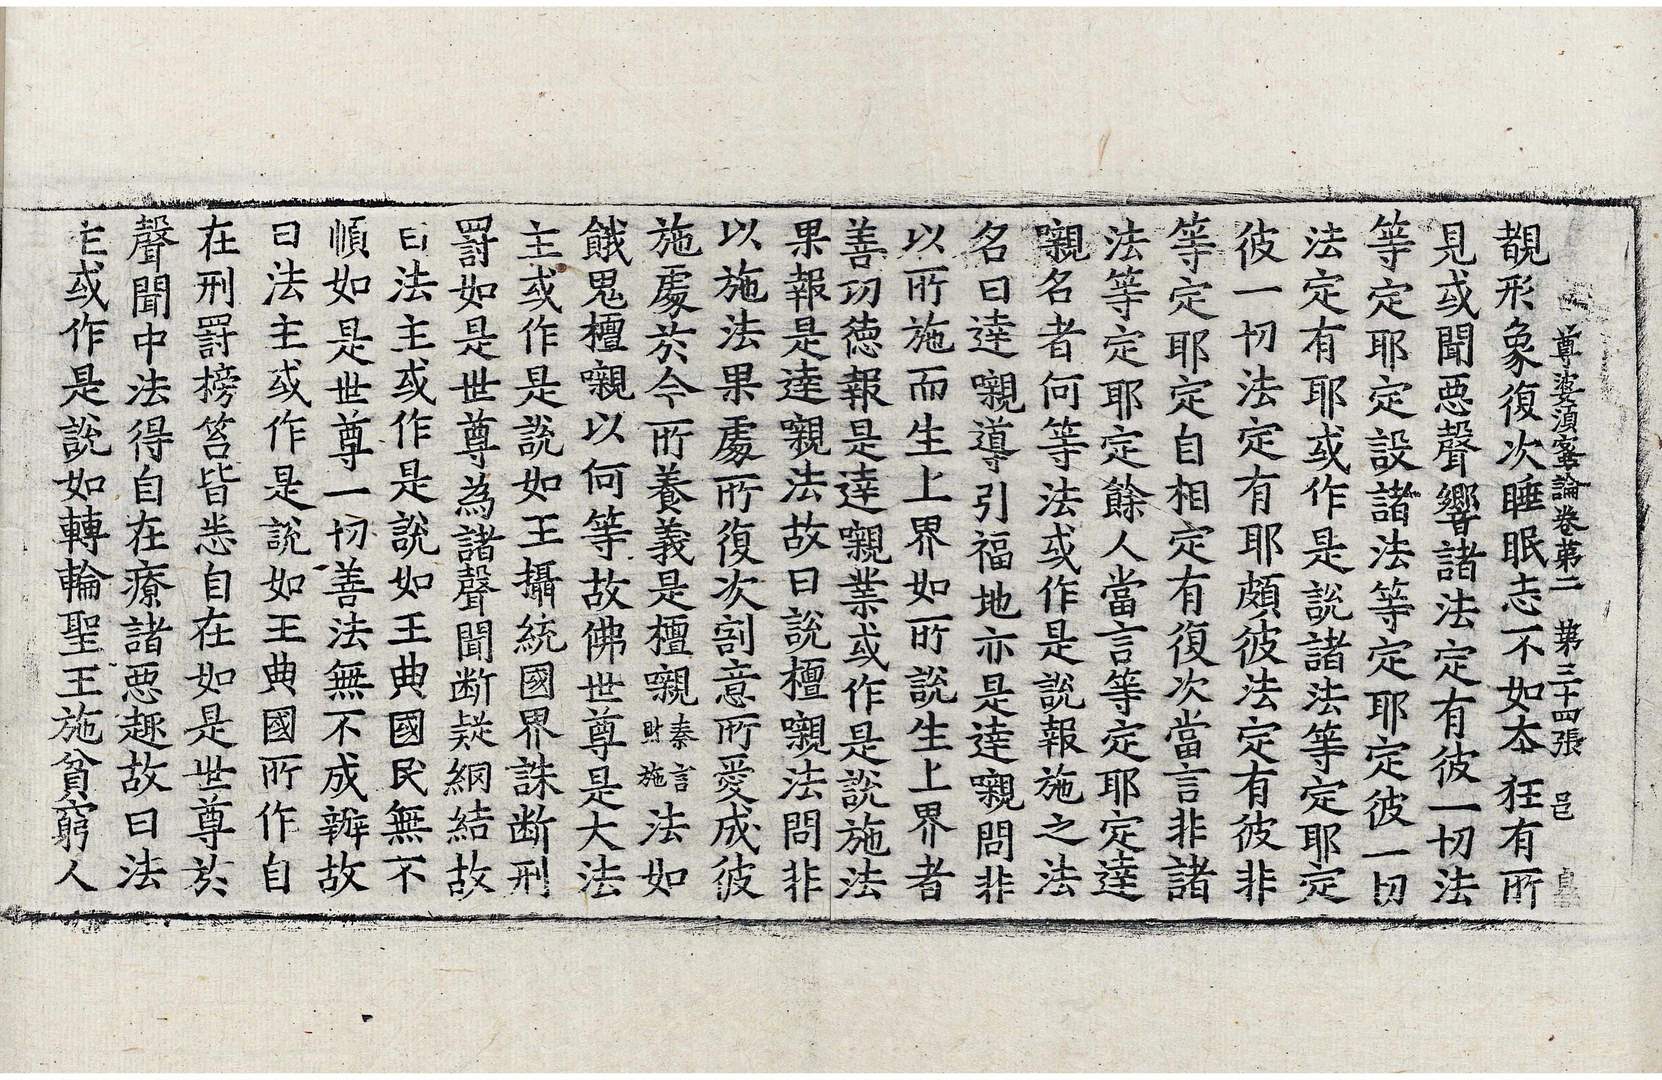 尊婆湏蜜論卷第二　第三十四張　邑
覩形象復次睡眠志不如夲狂有所
見或聞悪聲響諸法定有彼一切法
等定耶定設諸法等定耶定彼一切
法定有耶或作是說諸法等定耶定
彼一切法定有耶頗彼法定有彼非
等定耶定自相定有復次當言非諸
法等定耶定餘人當言等定耶定達
嚫名者何等法或作是說報施之法
名曰達嚫導引福地亦是達嚫問非
以所施而生上界如所說生上界者
善功德報是達嚫業或作是說施法
果報是達嚫法故曰說檀嚫法問非
以施法果處所復次割意所愛成彼
施處於今所養義是檀嚫秦言財施法如
餓鬼檀嚫以何等故佛世尊是大法
主或作是說如王攝統國界誅断刑
罰如是世尊為諸聲聞断疑網結故
曰法主或作是說如王典國民無不
順如是世尊一切善法無不成辦故
曰法主或作是說如王典國所作自
在刑罰搒笞皆悉自在如是世尊於
聲聞中法得自在療諸悪趣故曰法
主或作是說如轉輪聖王施貧窮人